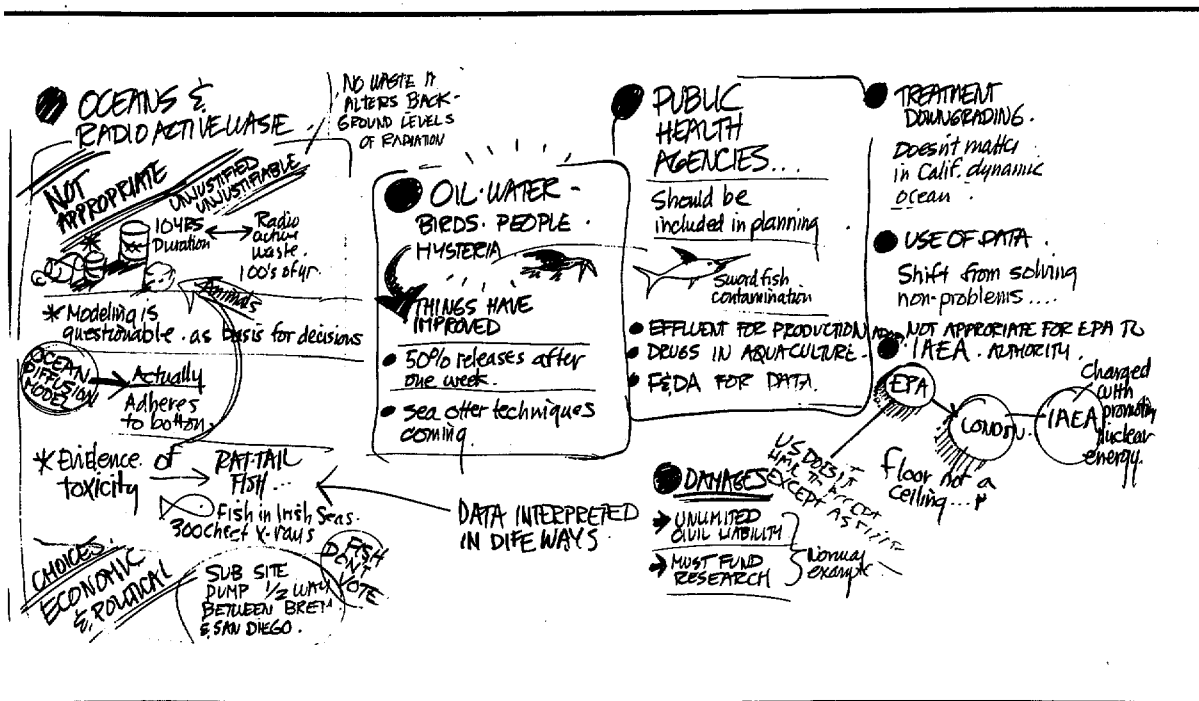 OCEANS &
RADIOACTIVE WASTE
NO WASTE IF
ALTERS BACK-
GROUND LEVELS
OF RADIATION
NOT
APPROPRIATE
UNJUSTIFIED
UNJUSTIFIABLE
10 YRS
Duration
Radio
active
waste.
100's of yr.
Animals
* Modeling is
questionable. as basis for decisions
OCEAN
DIFFUSION
MODEL
Actually
Adheres
to bottom.
* Evidence of
toxicity
RAT-TAIL
FISH...
Fish in Irish Seas.
300 chest X-rays
CHOICES.
ECONOMIC
& POLITICAL
SUB SITE
DUMP 1/2 WAY
BETWEEN
& SAN DIEGO.
FISH
DON'T
VOTE
DATA INTERPRETED
IN DIFF WAYS.
OIL-WATER-
BIRDS. PEOPLE.
HYSTERIA
THINGS HAVE
IMPROVED
• 50% releases after
one week.
• sea otter techniques
coming.
PUBLIC
HEALTH
AGENCIES....
Should be
included in planning
Swordfish
contamination
• EFFLUENT FOR PRODUCTION
• DRUGS IN AQUACULTURE.
• F&DA FOR DATA.
DAMAGES
→ UNLIMITED
CIVIL LIABILITY
→ MUST FUND
RESEARCH
Normal
example
TREATMENT
DOWNGRADING.
Doesn't matter
in Calif. dynamic
ocean.
USE OF DATA.
Shift from solving
non-problems....
NOT APPROPRIATE FOR EPA TO
IAEA. AUTHORITY.
EPA
LONDON
IAEA
Charged
with
promoting
nuclear
energy.
floor not a
ceiling....
US DOESN'T
HAVE TO ACCEPT
EXCEPT AS